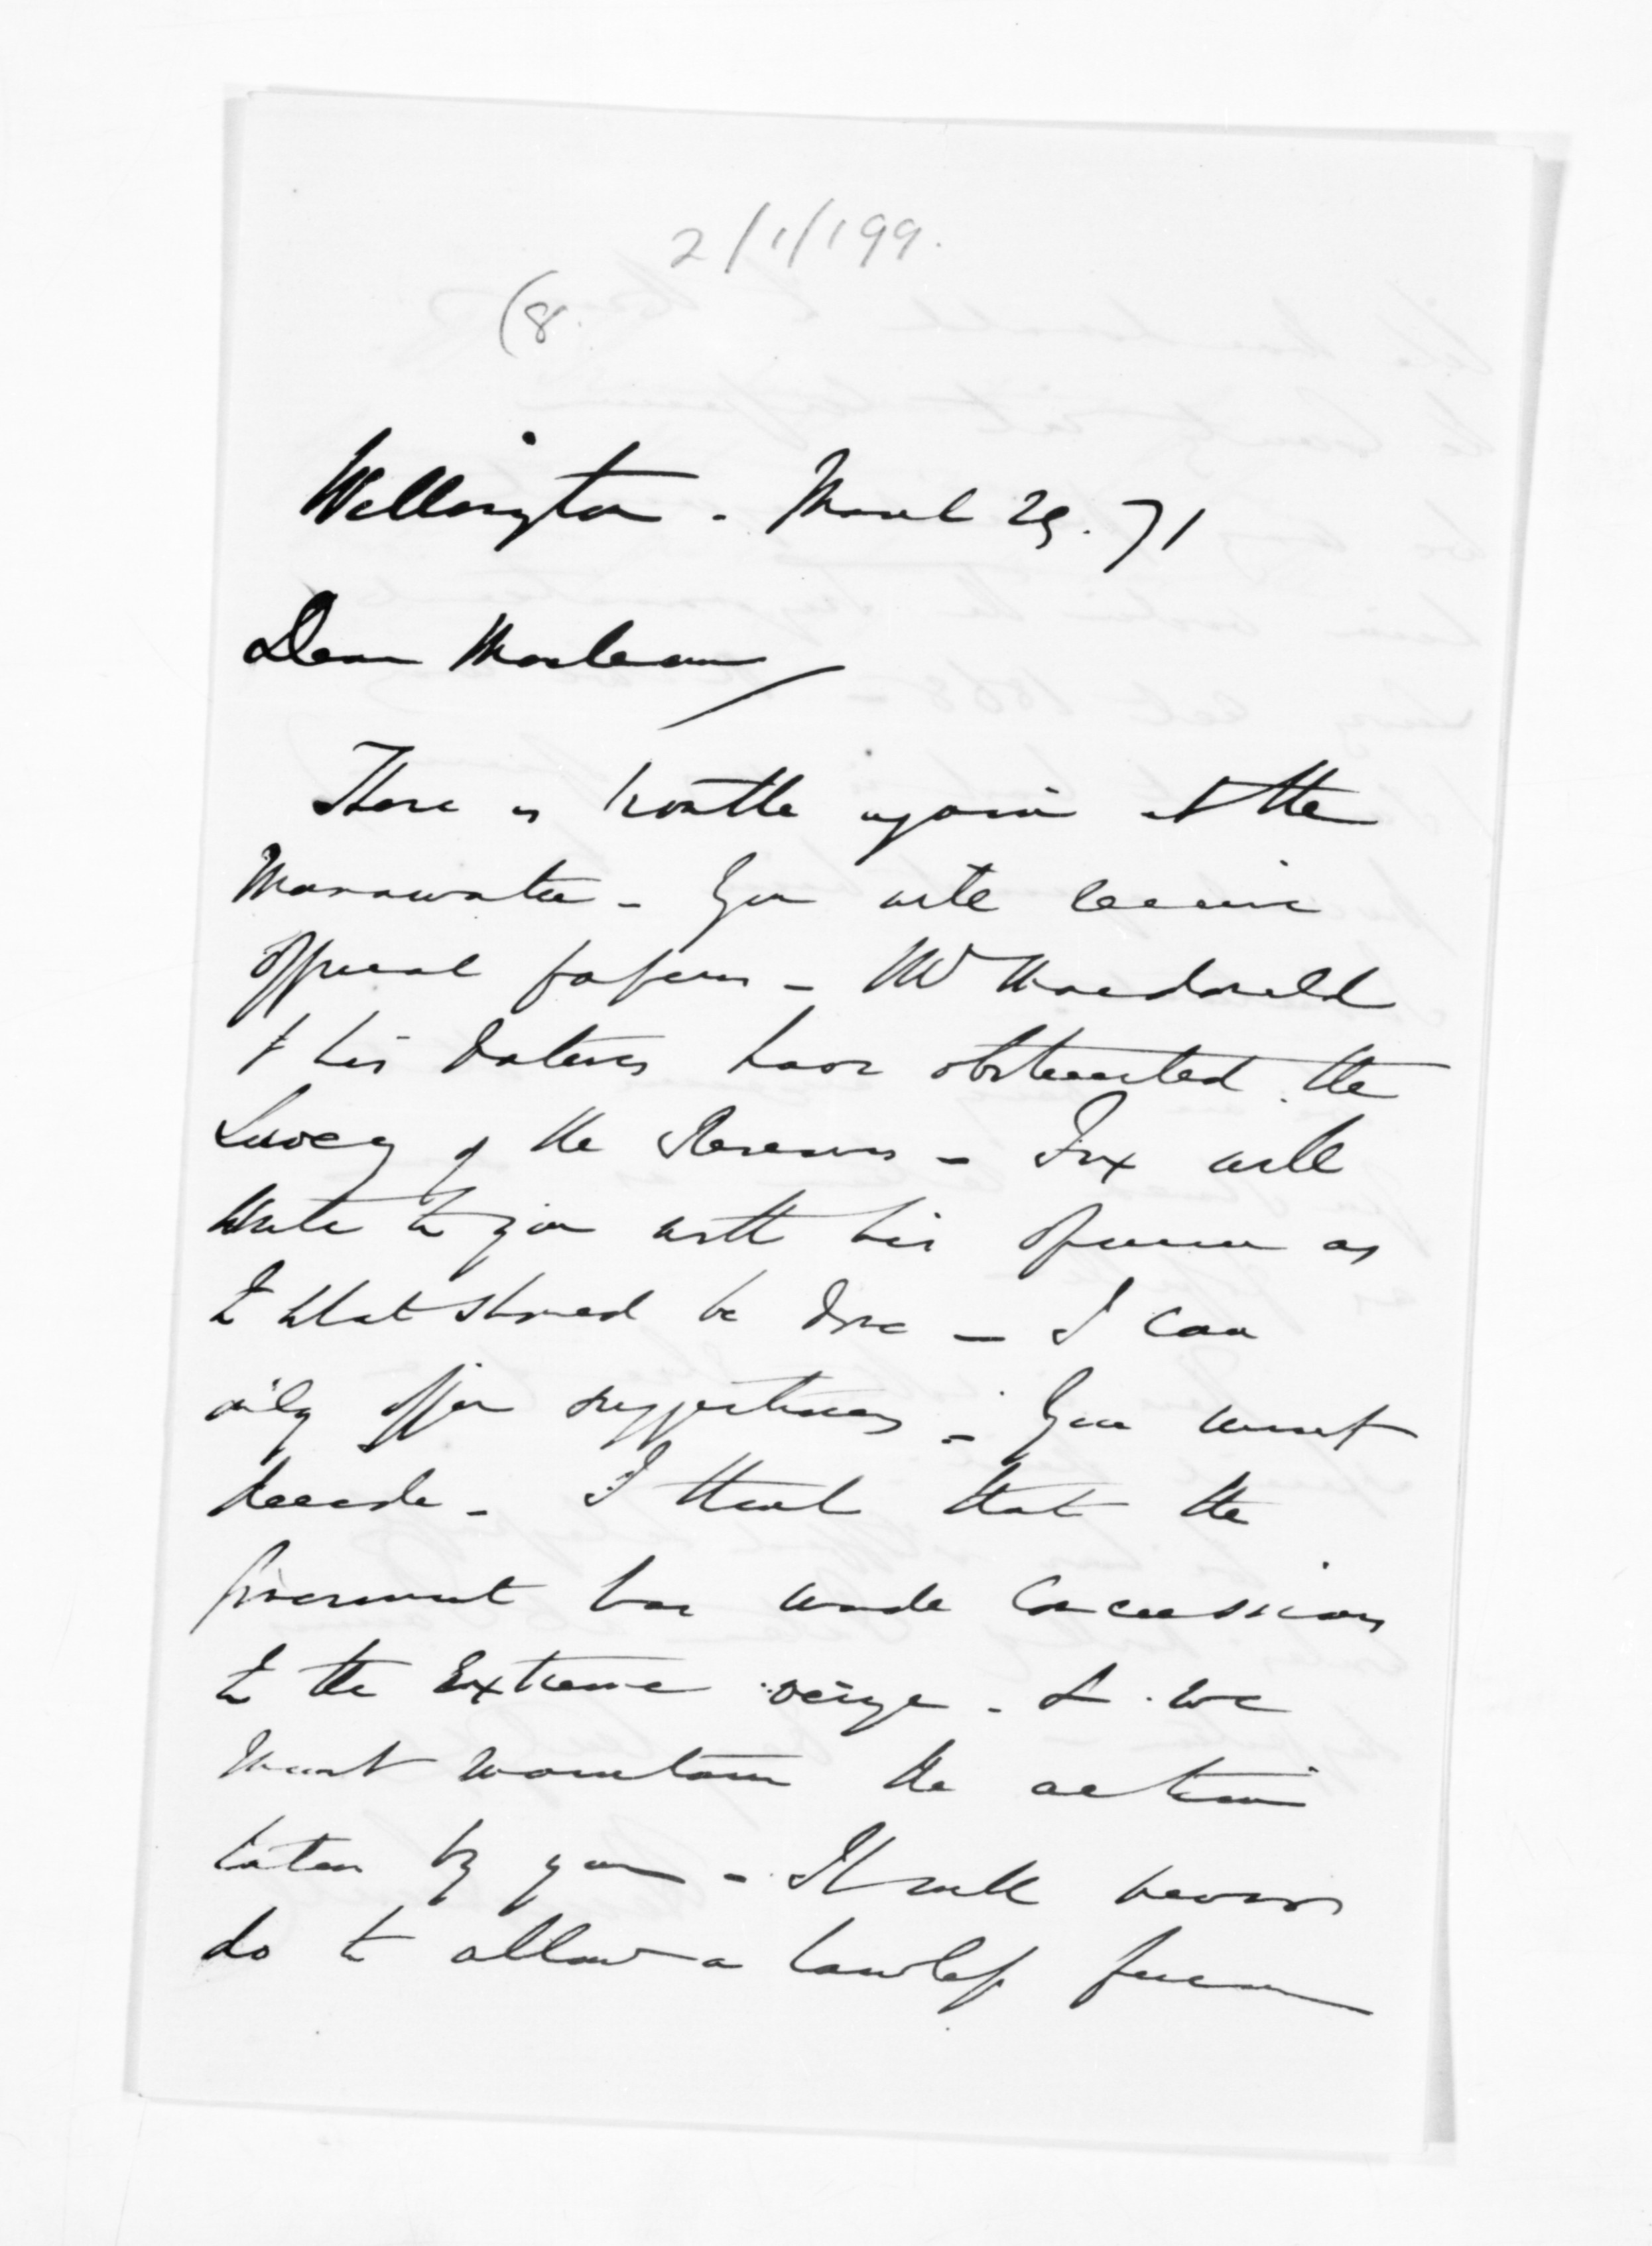 2/1/199.
(8.
Wellington - March 29. 71
Dear Maclean
There is trouble again at the
Manawatu - You will receive
official papers - Mr Macdonald
& his Natives have obstructed the
Survey of the Reserves - Fox will
write to you with his opinion as
to what should be done - I can
only offer suggestions - You must
decide - I think that the
Government has made Concessions
to the Extreme verge - & we
must maintain the action
taken by you - It will never
do to allow a lawless